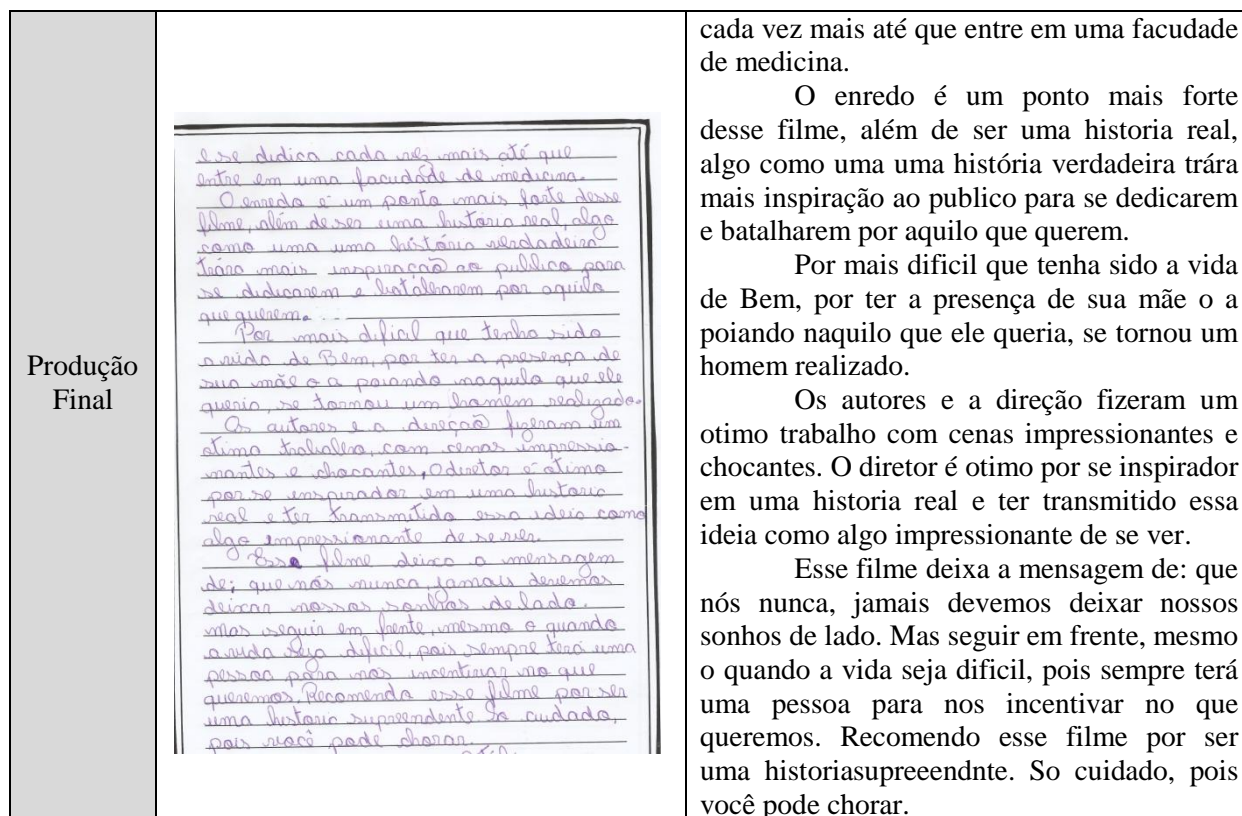 Produção
Final
e se didica cada vez mais até que
entre em uma facudade de medicina.
O enredo é um ponto mais forte desse
filme, além de ser uma historia real, algo
como uma uma história verdadeira
trára mais inspiração ao publico para
se didicarem e batalharem por aquilo
que querem.
Por mais dificil que tenha sido
a vida de Bem, por ter a presença de
sua mãe o a poiando naquilo que ele
queria, se tornou um homem realizado.
Os autores e a direção fizeram um
otimo trabalho, com cenas impressio-
nantes e chocantes, O diretor é otimo
por se inspirador em uma historia
real e ter transmitido essa ideia como
algo impressionante de se ver.
Esse filme deixa a mensagem
de; que nós nunca, jamais devemos
deixar nossos sonhos de lado.
mas seguir em frente, mesmo o quando
a vida seja dificil, pois sempre terá uma
pessoa para nos incentivar no que
queremos, Recomendo esse filme por ser
uma historia supreendente So cuidado,
pois você pode chorar.
cada vez mais até que entre em uma facudade
de medicina.
O enredo é um ponto mais forte
desse filme, além de ser uma historia real,
algo como una uma história verdadeira trára
mais inspiração ao publico para se dedicarem
e batalharem por aquilo que querem.
Por mais dificil que tenha sido a vida
de Bem, por ter a presença de sua mãe o a
poiando naquilo que ele queria, se tornou um
homem realizado.
Os autores e a direção fizeram um
otimo trabalho com cenas impressionantes e
chocantes. O diretor é otimo por se inspirador
em uma historia real e ter transmitido essa
ideia como algo impressionante de se ver.
Esse filme deixa a mensagem de: que
nós nunca, jamais devemos deixar nossos
sonhos de lado. Mas seguir em frente, mesmo
o quando a vida seja dificil, pois sempre terá
uma pessoa para nos incentivar no que
queremos. Recomendo esse filme por ser
uma historiasupreeendnte. So cuidado, pois
você pode chorar.